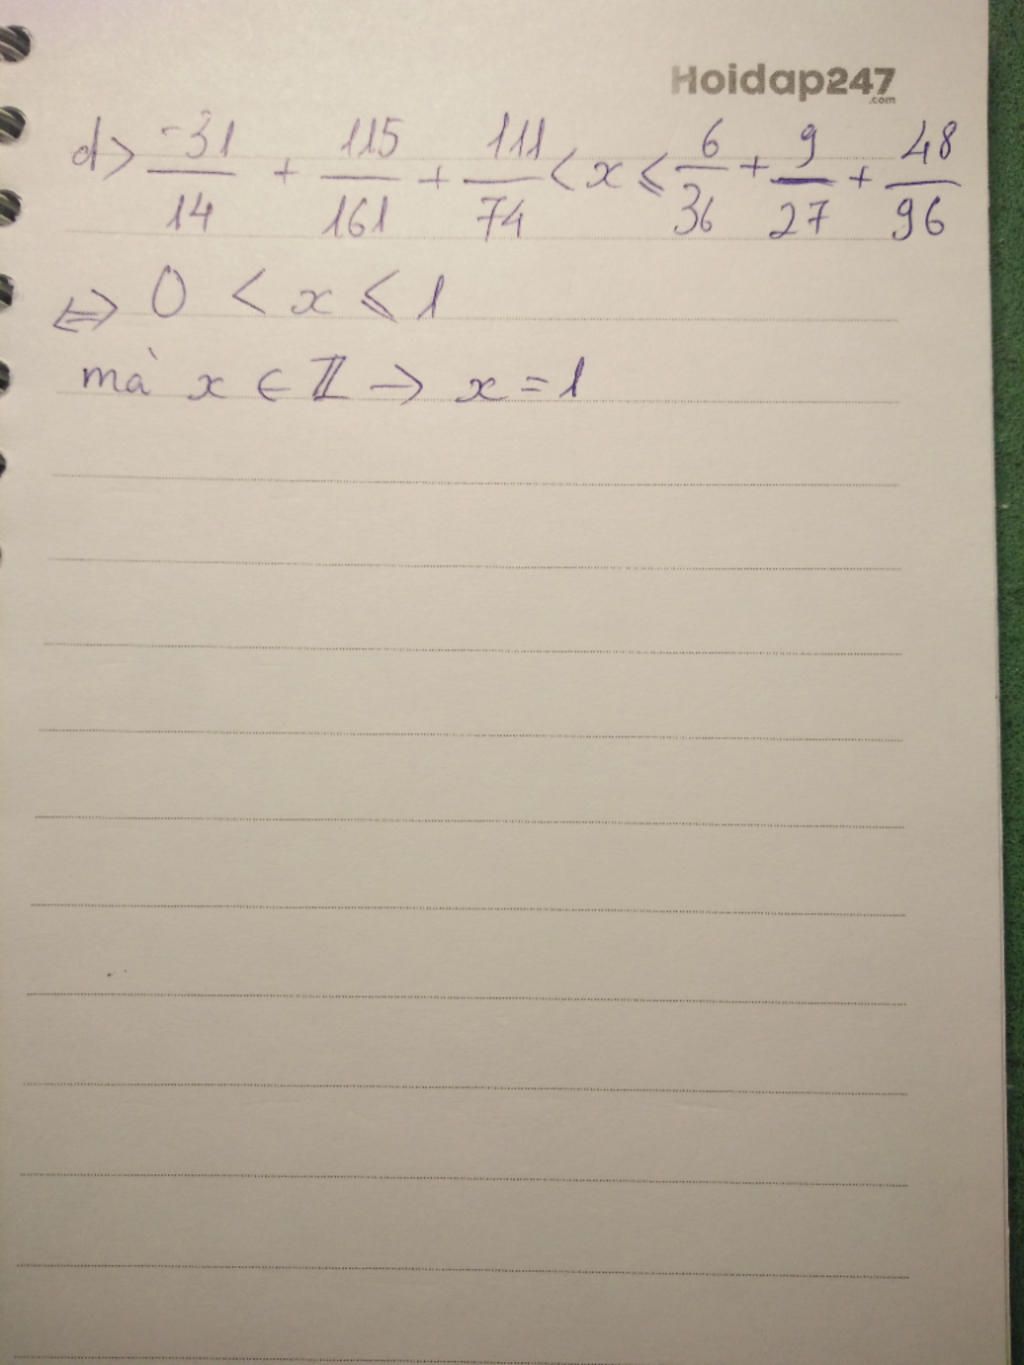 Hoidap247
.com
d> -31/14 + 115/161 + 111/74 < x ⩽ 6/36 + 9/27 + 48/96
⇔ 0 < x ⩽ 1
mà x ∈ ℤ → x = 1